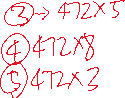 ③→ 472×5
④ 472×8
⑤ 472×3